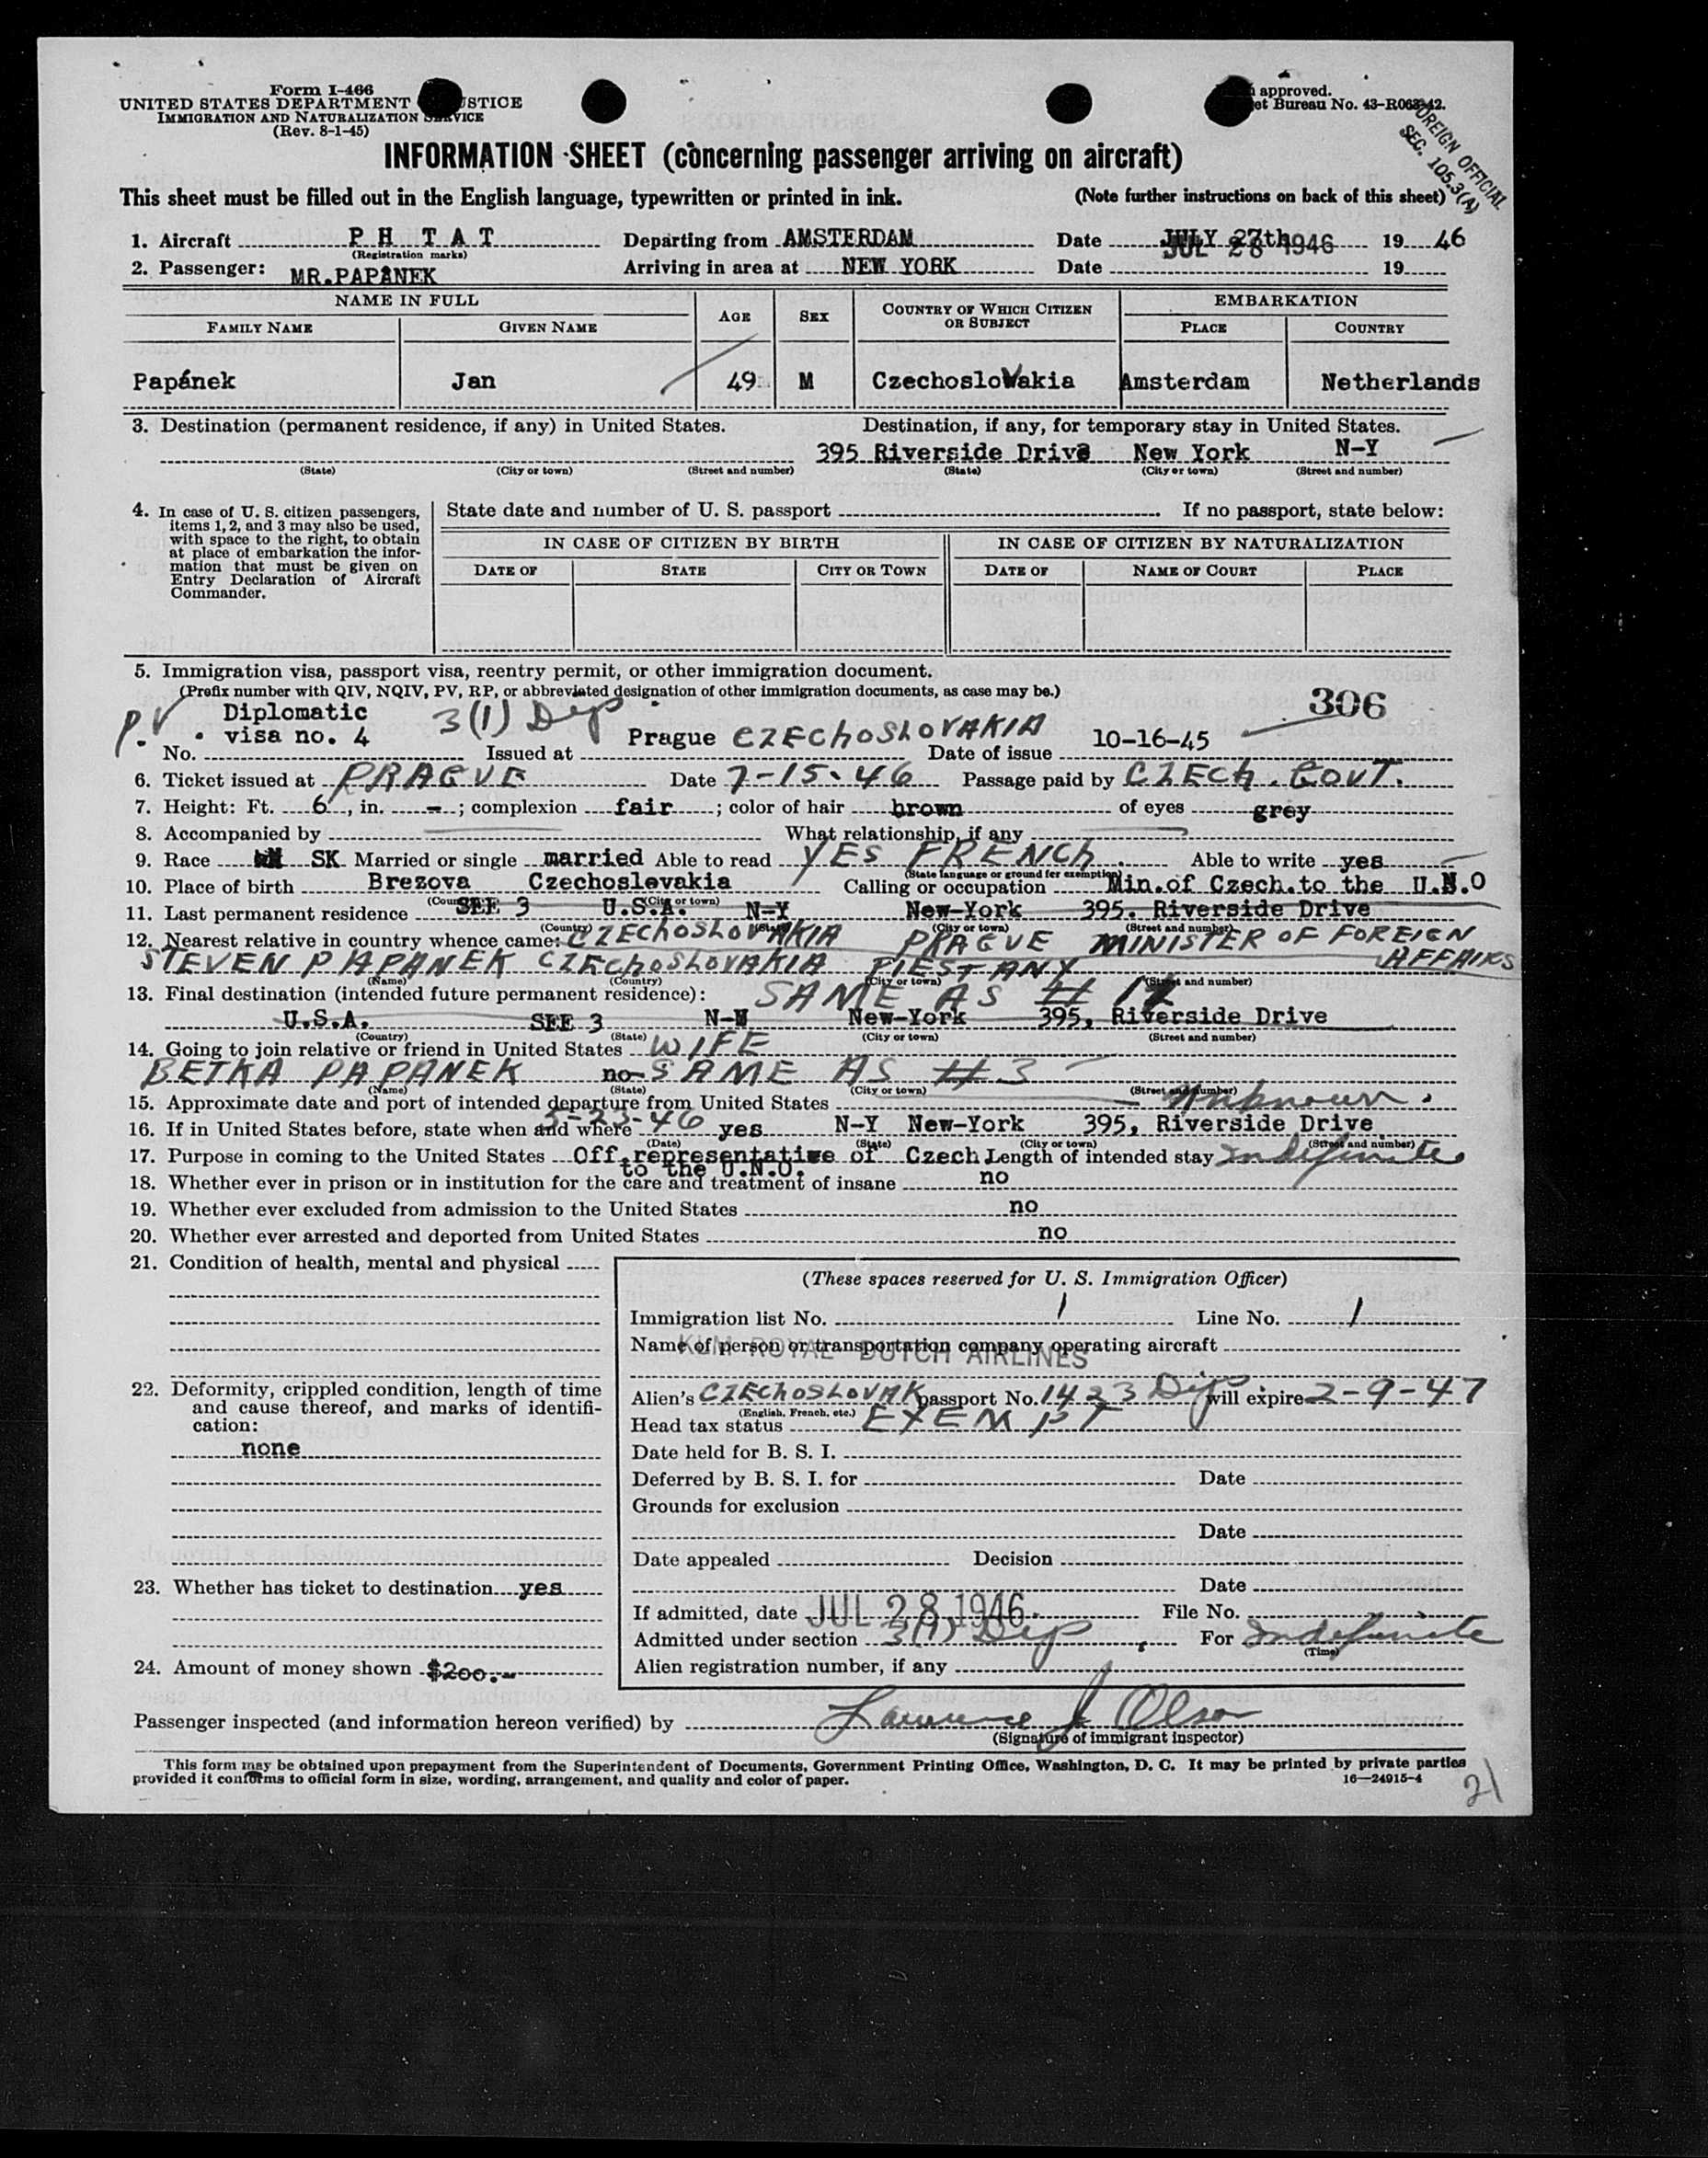 Form I-466
UNITED STATES DEPARTMENT STICE
IMMIGRATION AND NATURALIZATION SERVICE
(Rev. 8-1-45)
approved.
et Bureau No. 43-R063-42.
FOREIGN OFFICIAL
SEC. 105.3(A)
INFORMATION SHEET (concerning passenger arriving on aircraft)
This sheet must be filled out in the English language, typewritten or printed in ink. (Note further instructions on back of this sheet)
1. Aircraft P H T A T Departing from AMSTERDAM Date JULY 27th 19 46
(Registration marks) JUL 28 1946
2. Passenger: MR.PAPÂNEK Arriving in area at NEW YORK Date 19
NAME IN FULL AGE SEX COUNTRY OF WHICH CITIZEN OR SUBJECT EMBARKATION
FAMILY NAME GIVEN NAME PLACE COUNTRY
Papánek Jan 49 M CzechosloVakia Amsterdam Netherlands
3. Destination (permanent residence, if any) in United States. Destination, if any, for temporary stay in United States.
395 Riverside Drive New York N-Y
(State) (City or town) (Street and number) (State) (City or town) (Street and number)
4. In case of U. S. citizen passengers, items 1, 2, and 3 may also be used, with space to the right, to obtain at place of embarkation the information that must be given on Entry Declaration of Aircraft Commander.
State date and number of U. S. passport If no passport, state below:
IN CASE OF CITIZEN BY BIRTH IN CASE OF CITIZEN BY NATURALIZATION
DATE OF STATE CITY OR TOWN DATE OF NAME OF COURT PLACE
5. Immigration visa, passport visa, reentry permit, or other immigration document.
(Prefix number with QIV, NQIV, PV, RP, or abbreviated designation of other immigration documents, as case may be.)
306
P.V. Diplomatic 3(1) Dip
visa no. 4 Prague CZECHOSLOVAKIA 10-16-45
No. Issued at Date of issue
6. Ticket issued at PRAGUE Date 7-15-46 Passage paid by CZECH. GOVT.
7. Height: Ft. 6, in. -; complexion fair; color of hair brown of eyes grey
8. Accompanied by What relationship, if any
9. Race SK Married or single married Able to read YES FRENCH. Able to write yes
(State language or ground for exemption)
10. Place of birth Brezova Czechoslovakia Calling or occupation Min.of Czech.to the U.N.O
(City or town)
11. Last permanent residence SEE 3 U.S.A. N-Y New-York 395. Riverside Drive
(Country) (State) (City or town) (Street and number)
12. Nearest relative in country whence came: CZECHOSLOVAKIA PRAGUE MINISTER OF FOREIGN AFFAIRS
STEVEN PAPANEK CZECHOSLOVAKIA PIESTANY
(Name) (Country) (City or town) (Street and number)
13. Final destination (intended future permanent residence): SAME AS # 12
U.S.A. SEE 3 New-York 395, Riverside Drive
(Country) (State) (City or town) (Street and number)
14. Going to join relative or friend in United States WIFE
BETKA PAPANEK no- SAME AS #3
(Name) (State) (City or town) (Street and number)
15. Approximate date and port of intended departure from United States Unknown.
16. If in United States before, state when and where 5-23-46 yes N-Y New-York 395, Riverside Drive
(Date) (State) (City or town) (Street and number)
17. Purpose in coming to the United States Off.representative of Czech. Length of intended stay Indefinite
to the U.N.O.
18. Whether ever in prison or in institution for the care and treatment of insane no
19. Whether ever excluded from admission to the United States no
20. Whether ever arrested and deported from United States no
21. Condition of health, mental and physical
22. Deformity, crippled condition, length of time and cause thereof, and marks of identification:
none
23. Whether has ticket to destination yes
24. Amount of money shown $200.-
(These spaces reserved for U. S. Immigration Officer)
Immigration list No. 1 Line No. 1
Name of person or transportation company operating aircraft
KLM ROYAL DUTCH AIRLINES
Alien's CZECHOSLOVAK passport No. 1423 Dip will expire 2-9-47
(English, French, etc.)
Head tax status EXEMPT
Date held for B. S. I.
Deferred by B. S. I. for Date
Grounds for exclusion
Date
Date appealed Decision
Date
If admitted, date JUL 28 1946 File No.
Admitted under section 3(1) Dip, For Indefinite
(Time)
Alien registration number, if any
Passenger inspected (and information hereon verified) by Lawrence J Olson
(Signature of immigrant inspector)
This form may be obtained upon prepayment from the Superintendent of Documents, Government Printing Office, Washington, D. C. It may be printed by private parties
provided it conforms to official form in size, wording, arrangement, and quality and color of paper. 16—24915-4
21